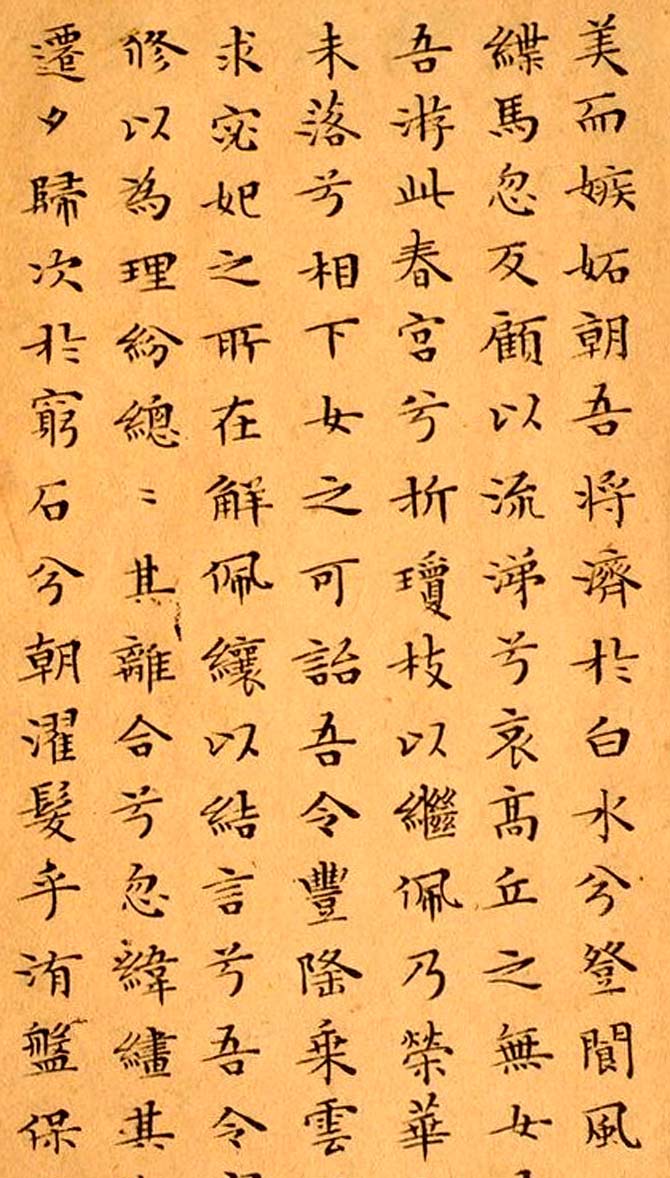 美而嫉妬朝吾将濟於白水兮登閬風
緤馬忽反顧以流涕兮哀高丘之無女
吾游此春宮兮折瓊枝以繼佩乃榮華
未落兮相下女之可詒吾令豐隆乗雲
求宓妃之所在解佩纕以結言兮吾令
修以為理紛總〻其離合兮忽緯繣其
遷夕歸次於窮石兮朝濯髮乎洧盤保